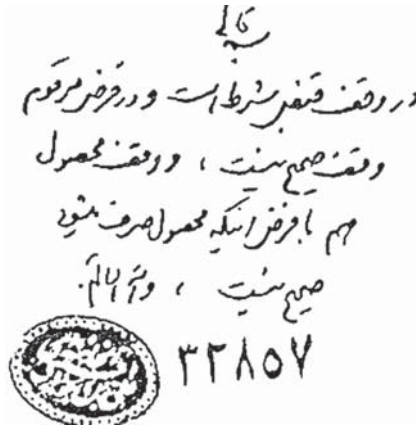 بسمه تعالی
در وقف قبض شرط است و در فرض مرقوم
وقف صحیح نیست ، و وقف محصول
هم با فرض اینکه محصول صرف میشود
صحیح نیست ، والله العالم.
۳۲۸۵۷